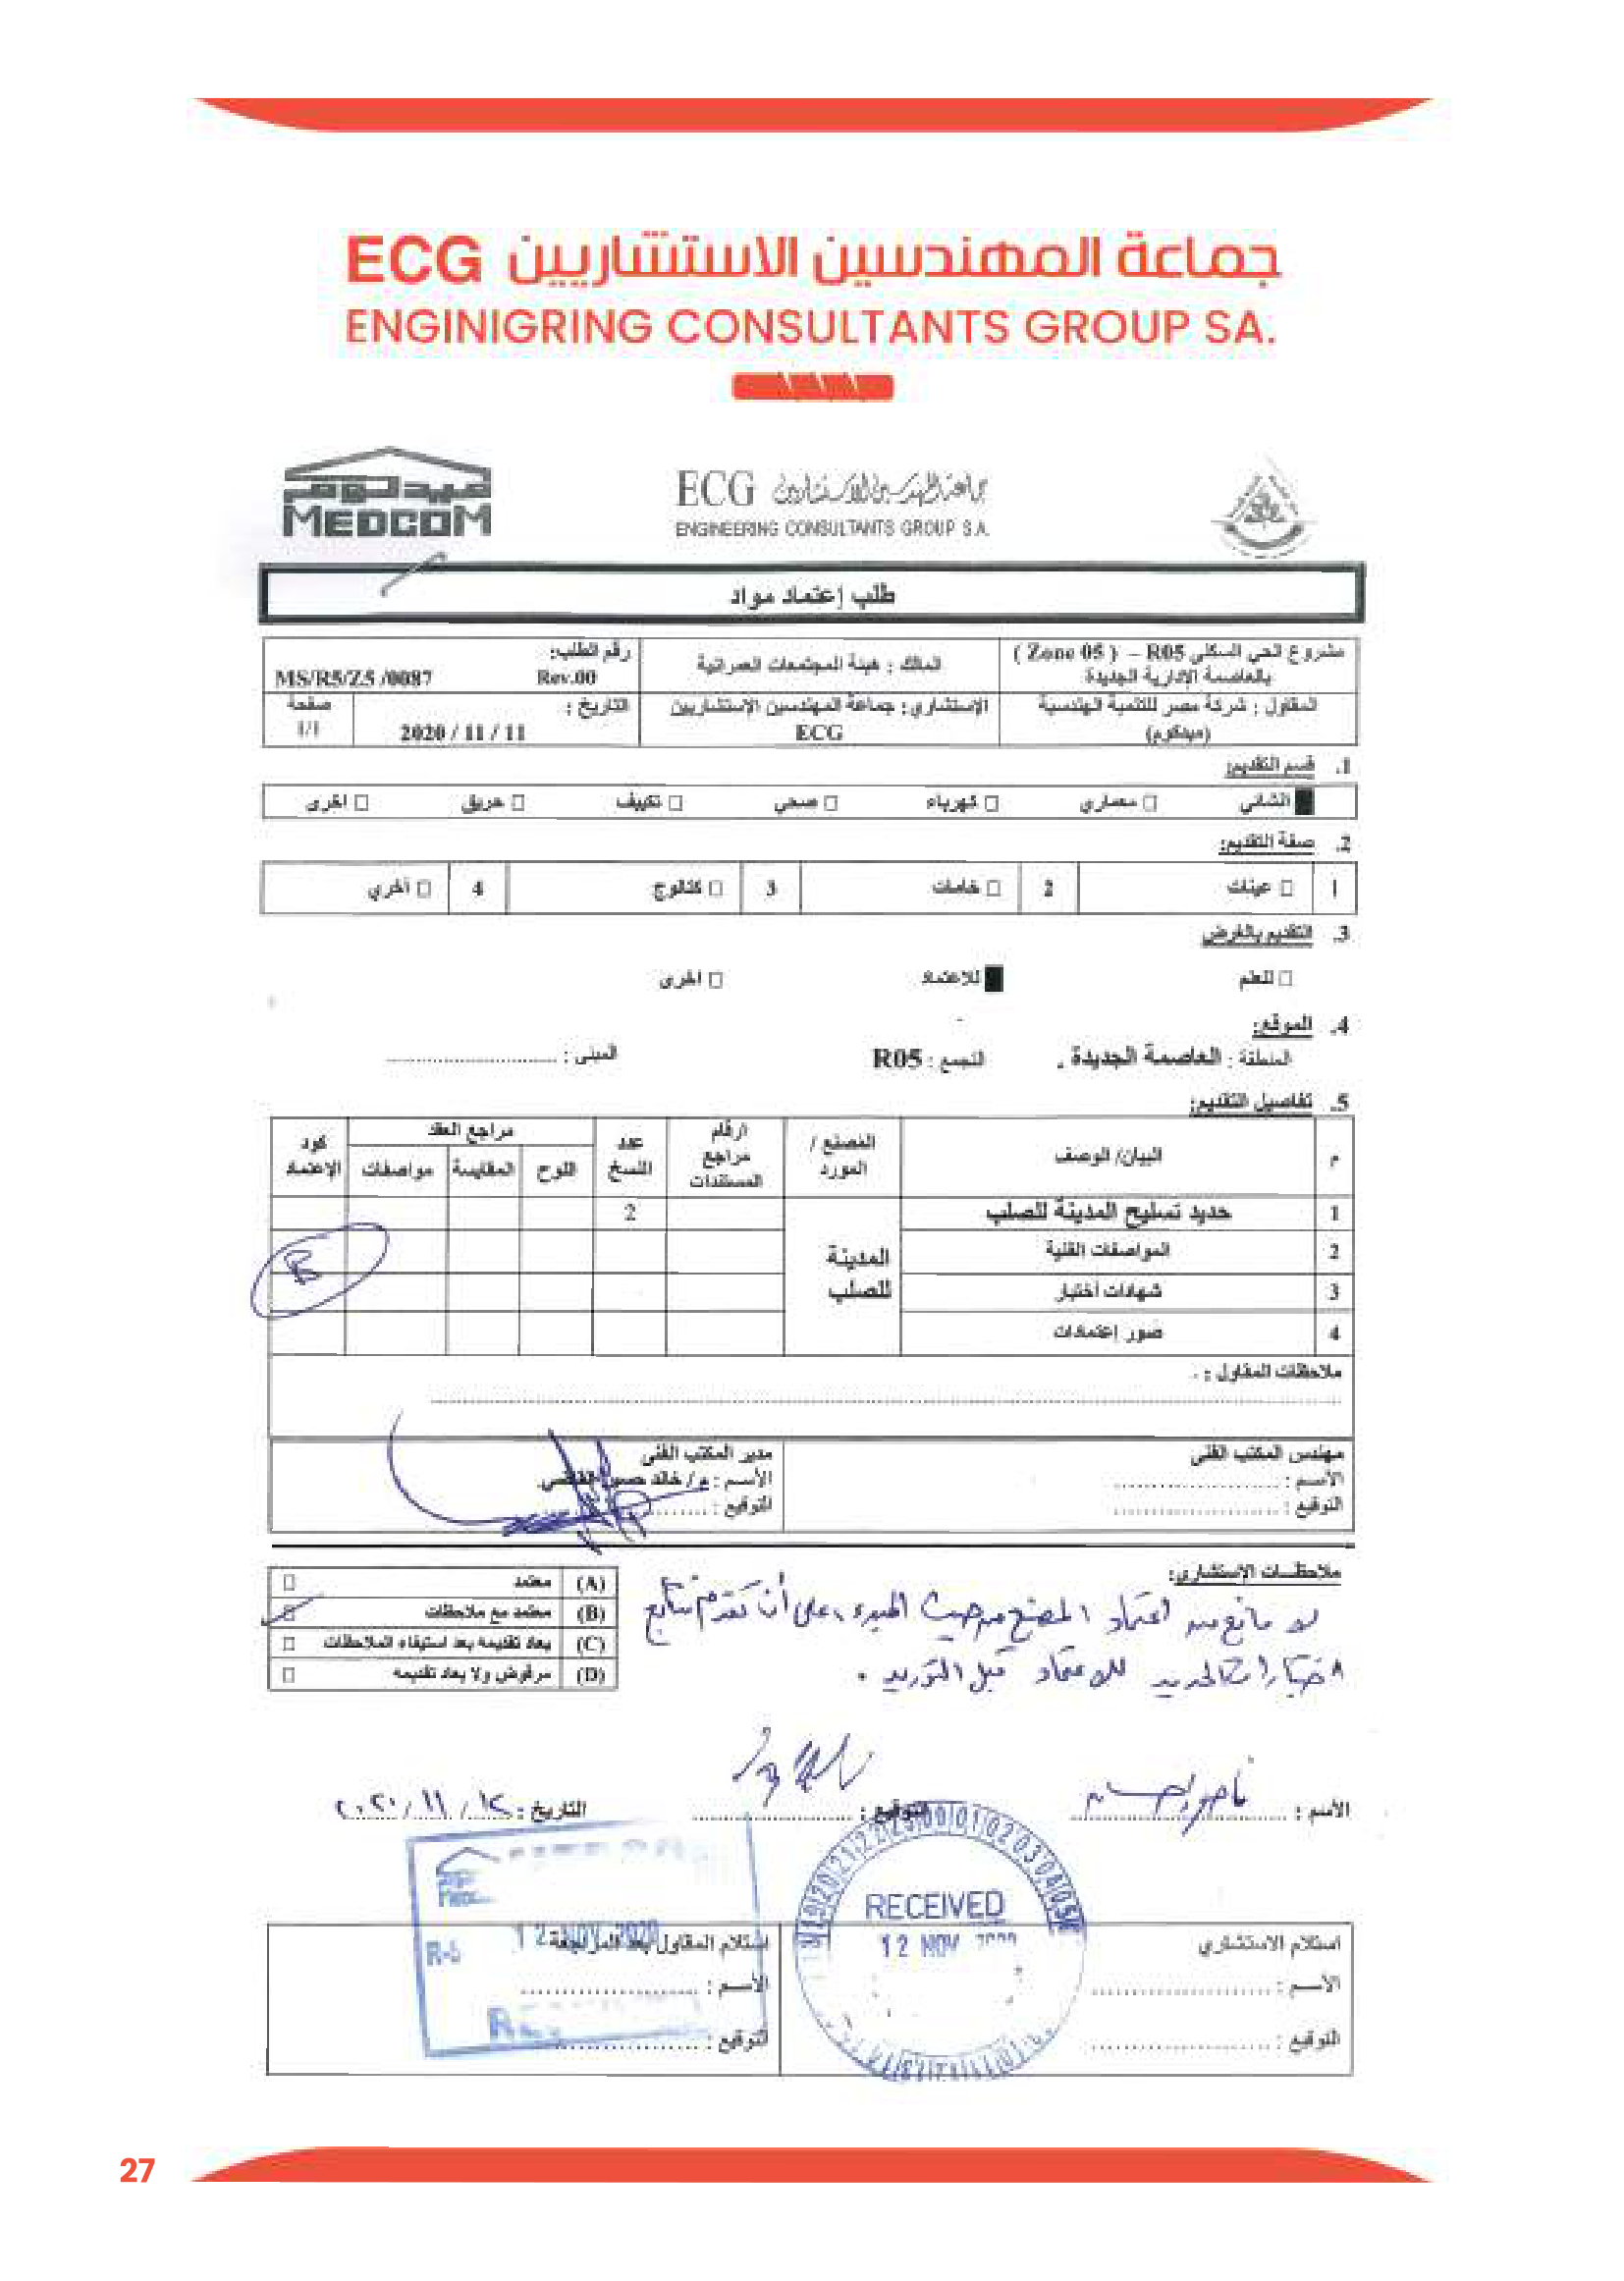 جماعة المهندسين الاستشاريين ECG
ENGINIGRING CONSULTANTS GROUP SA.
ميدكوم
MEDCOM
ECG جماعة المهندسين الاستشاريين
ENGINEERING CONSULTANTS GROUP S.A.
طلب إعتماد مواد
مشروع الحي السكني R05 – ( Zone 05 )
بالعاصمة الإدارية الجديدة
المالك : هيئة المجتمعات العمرانية
رقم الطلب:
MS/R5/Z5 /0087 Rev.00
المقاول : شركة مصر للتنمية الهندسية
(ميدكوم)
الإستشاري : جماعة المهندسين الإستشاريين
ECG
التاريخ :
2020 / 11 / 11
صفحة
1/1
1. قسم التقديم:
انشائي معماري كهرباء صحي تكييف حريق اخرى
2. صفة التقديم:
1 عينات 2 خامات 3 كتالوج 4 أخري
3. التقديم بالغرض
للعلم للاعتماد اخرى
4. الموقع:
المنطقة : العاصمة الجديدة . التجمع : R05 المبنى :
5. تفاصيل التقديم:
م البيان/ الوصف المصنع / المورد ارقام مراجع المستندات عدد النسخ مراجع العقد كود الإعتماد
اللوح المقايسة مواصفات
1 حديد تسليح المدينة للصلب 2
2 المواصفات الفنية
المدينة للصلب
B
3 شهادات أختبار
4 صور إعتمادات
ملاحظات المقاول : .
مهندس المكتب الفنى
الأسم :
التوقيع :
مدير المكتب الفنى
الأسم : م/ خالد حسين
التوقيع :
ملاحظات الإستشارى:
لا مانع من اعتماد المصنع من حيث المبدء ، على أن تقدم نتائج
اختبارات الحديد للاعتماد قبل التوريد .
(A) معتمد
(B) معتمد مع ملاحظات
(C) يعاد تقديمه بعد استيفاء الملاحظات
(D) مرفوض ولا يعاد تقديمه
الأسم :
التوقيع :
التاريخ : ١٢ / ١١ / ٢٠٢٠
RECEIVED
12 NOV
12 NOV 2020
R-5
استلام الاستشاري
الأسم :
التوقيع :
استلام المقاول بعد المراجعة
الأسم :
التوقيع :
27